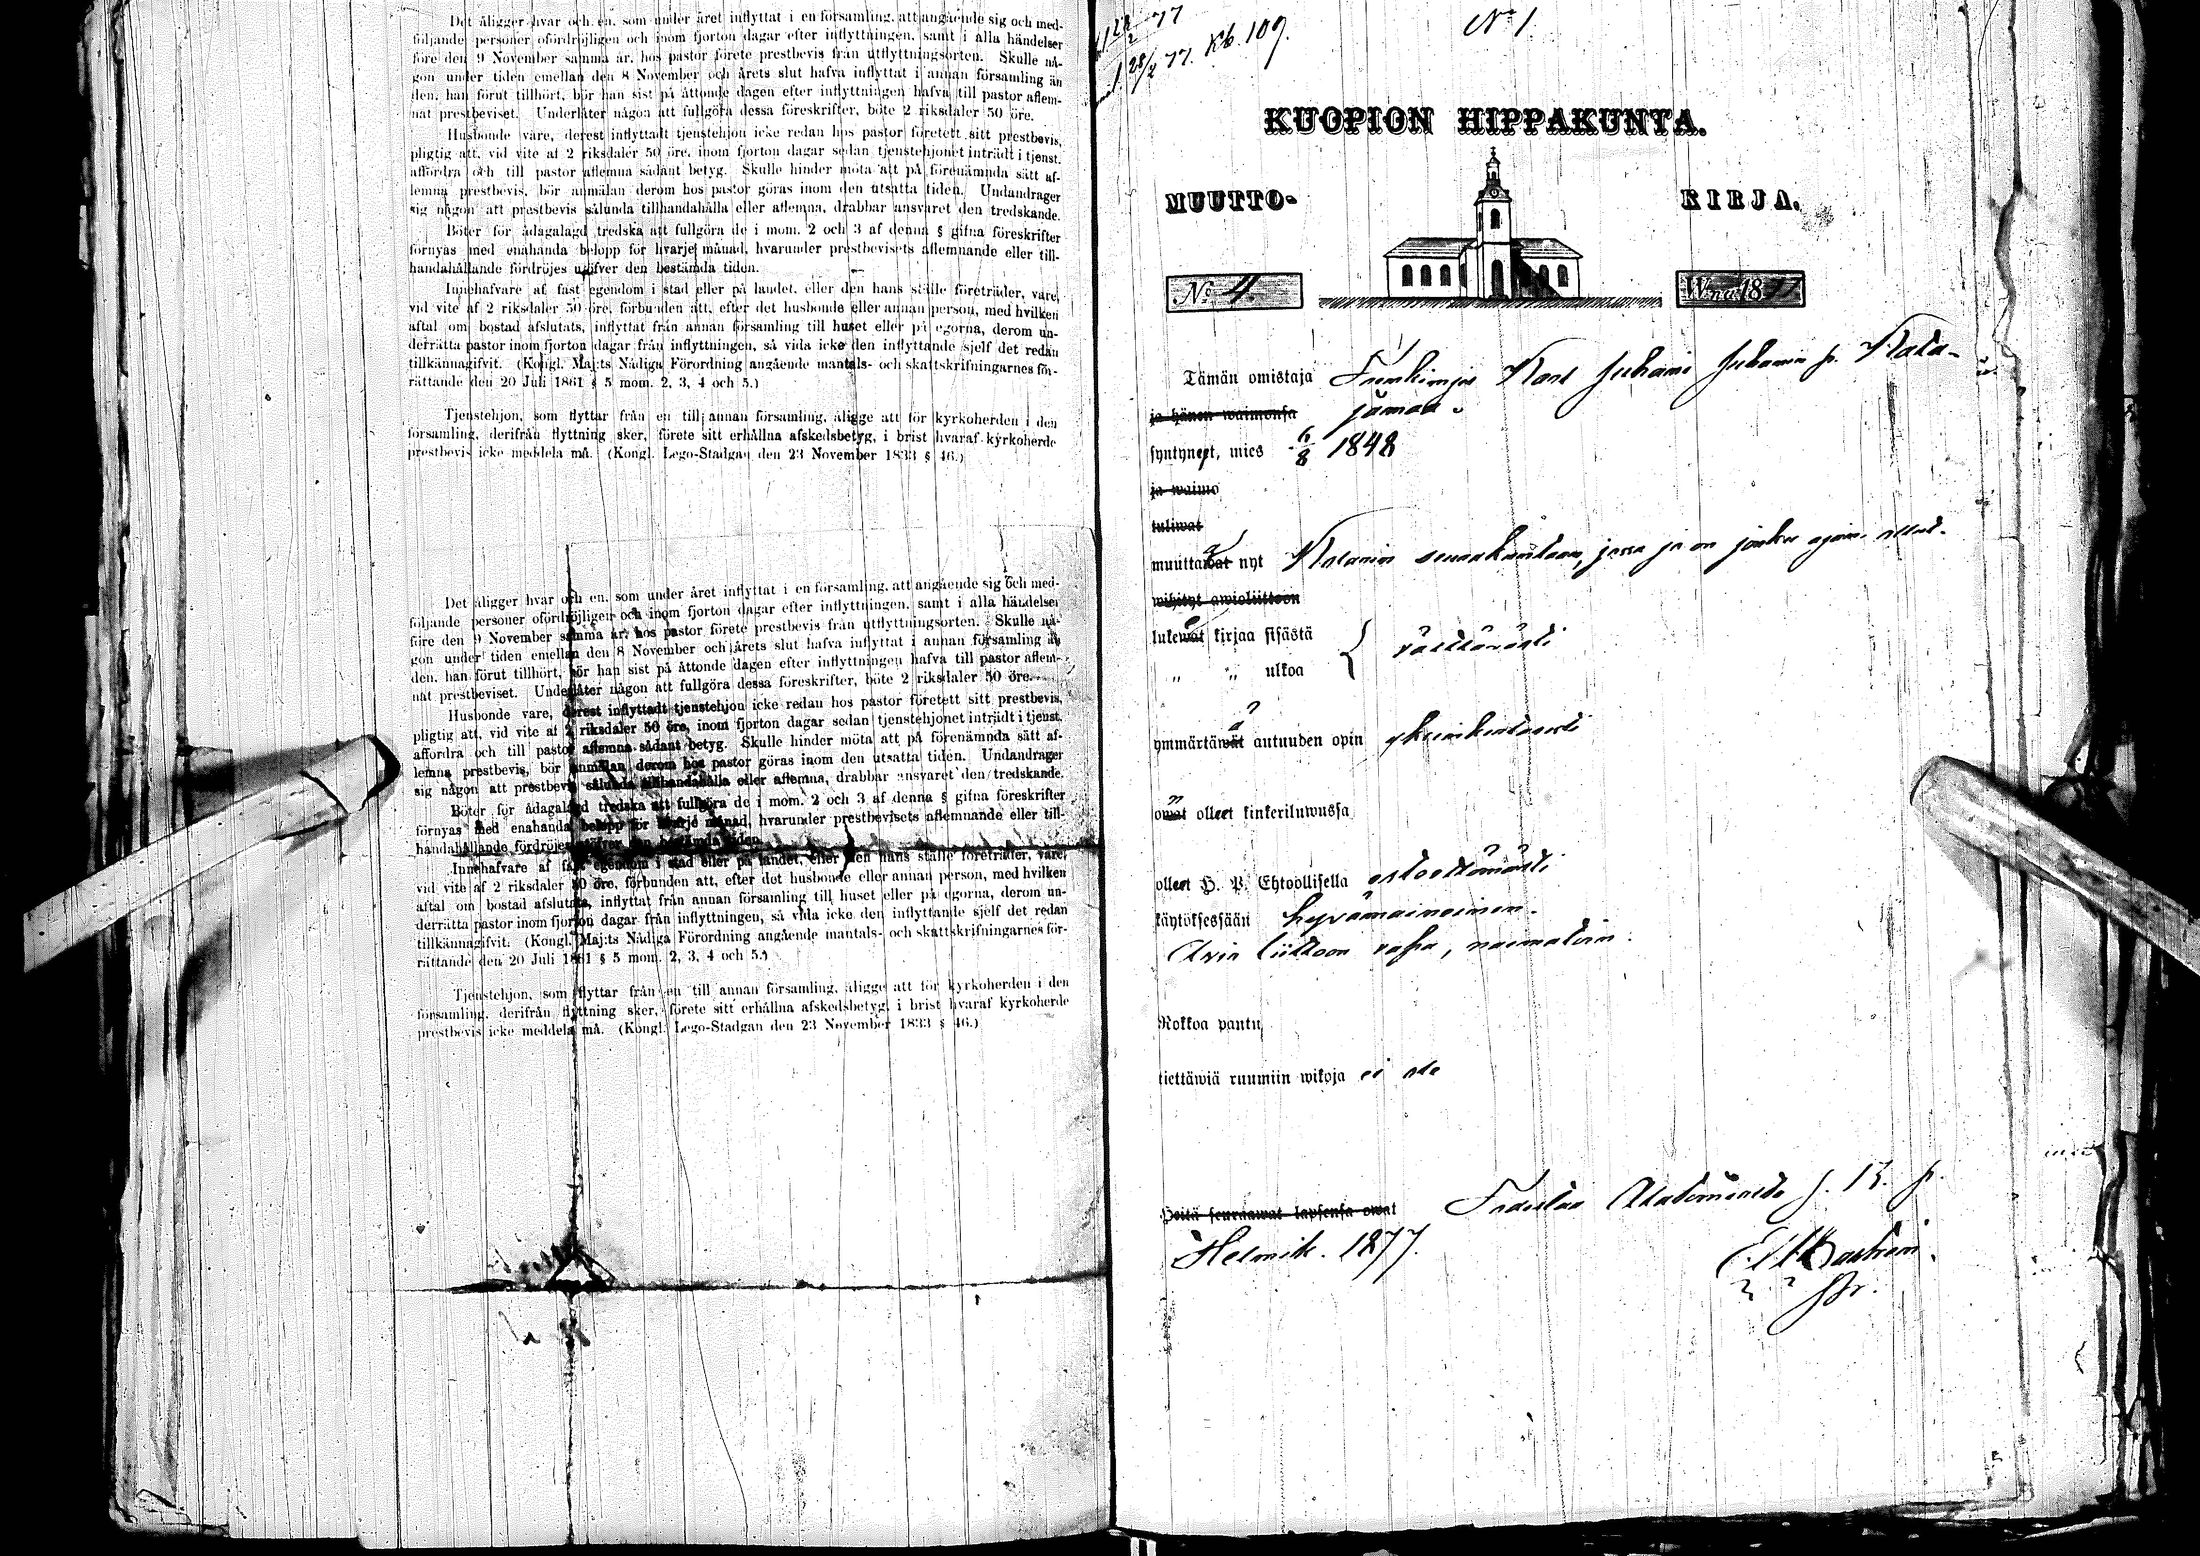 Det åligger hvar och en, som under året inflyttat i en församling, att angående sig och med-
följande personer ofördröjligen och inom fjorton dagar efter inflyttningen, samt i alla händelser
före den 9 November samma år, hos pastor förete prestbevis från utflyttningsorten. Skulle nå-
gon under tiden emellan den 8 November och årets slut hafva inflyttat i annan församling än
den, han förut tillhört, bör han sist på åttonde dagen efter inflyttningen hafva till pastor aflem-
nat prestbeviset. Underlåter någon att fullgöra dessa föreskrifter, böte 2 riksdaler 50 öre.
Husbonde vare, derest inflyttadt tjenstehjon icke redan hos pastor företett sitt prestbevis,
pligtig att, vid vite af 2 riksdaler 50 öre, inom fjorton dagar sedan tjenstehjonet inträdt i tjenst,
affordra och till pastor aflemna sådant betyg. Skulle hinder möta att på förenämnda sätt af-
lemna prestbevis, bör anmälan derom hos pastor göras inom den utsatta tiden. Undandrager
sig någon att prestbevis sålunda tillhandahålla eller aflemna, drabbar ansvaret den tredskande.
Böter för ådagalagd tredska att fullgöra de i mom. 2 och 3 af denna § gifna föreskrifter
förnyas med enahanda belopp för hvarje månad, hvarunder prestbevisets aflemnande eller till-
handahållande fördröjes utöfver den bestämda tiden.
Innehafvare af fast egendom i stad eller på landet, eller den hans ställe företräder, vare,
vid vite af 2 riksdaler 50 öre, förbunden att, efter det husbonde eller annan person, med hvilken
aftal om bostad afslutats, inflyttat från annan församling till huset eller på egorna, derom un-
derrätta pastor inom fjorton dagar från inflyttningen, så vida icke den inflyttande sjelf det redan
tillkännagifvit. (Kongl. Maj:ts Nådiga Förordning angående mantals- och skattskrifningarnes för-
rättande den 20 Juli 1861 § 5 mom. 2, 3, 4 och 5.)
Tjenstehjon, som flyttar från en till annan församling, åligge att för kyrkoherden i den
församling, derifrån flyttning sker, förete sitt erhållna afskedsbetyg, i brist hvaraf kyrkoherde
prestbevis icke meddela må. (Kongl. Lego-Stadgan den 23 November 1833 § 46.)
Det åligger hvar och en, som under året inflyttat i en församling, att angående sig och med-
följande personer ofördröjligen och inom fjorton dagar efter inflyttningen, samt i alla händelser
före den 9 November samma år, hos pastor förete prestbevis från utflyttningsorten. Skulle nå-
gon under tiden emellan den 8 November och årets slut hafva inflyttat i annan församling än
den, han förut tillhört, bör han sist på åttonde dagen efter inflyttningen hafva till pastor aflem-
nat prestbeviset. Underlåter någon att fullgöra dessa föreskrifter, böte 2 riksdaler 50 öre.
Husbonde vare, derest inflyttadt tjenstehjon icke redan hos pastor företett sitt prestbevis,
pligtig att, vid vite af 2 riksdaler 50 öre, inom fjorton dagar sedan tjenstehjonet inträdt i tjenst,
affordra och till pastor aflemna sådant betyg. Skulle hinder möta att på förenämnda sätt af-
lemna prestbevis, bör anmälan derom hos pastor göras inom den utsatta tiden. Undandrager
sig någon att prestbevis sålunda tillhandahålla eller aflemna, drabbar ansvaret den tredskande.
Böter för ådagalagd tredska att fullgöra de i mom. 2 och 3 af denna § gifna föreskrifter
förnyas med enahanda belopp för hvarje månad, hvarunder prestbevisets aflemnande eller till-
handahållande fördröjes utöfver den bestämda tiden.
Innehafvare af fast egendom i stad eller på landet, eller den hans ställe företräder, vare,
vid vite af 2 riksdaler 50 öre, förbunden att, efter det husbonde eller annan person, med hvilken
aftal om bostad afslutats, inflyttat från annan församling till huset eller på egorna, derom un-
derrätta pastor inom fjorton dagar från inflyttningen, så vida icke den inflyttande sjelf det redan
tillkännagifvit. (Kongl. Maj:ts Nådiga Förordning angående mantals- och skattskrifningarnes för-
rättande den 20 Juli 1861 § 5 mom. 2, 3, 4 och 5.)
Tjenstehjon, som flyttar från en till annan församling, åligge att för kyrkoherden i den
församling, derifrån flyttning sker, förete sitt erhållna afskedsbetyg, i brist hvaraf kyrkoherde
prestbevis icke meddela må. (Kongl. Lego-Stadgan den 23 November 1833 § 46.)
28/2 77. Kb. 109.
No 1.
KUOPION HIPPAKUNTA.
MUUTTO- KIRJA.
No 4. W:na 1877.
Tämän omistaja Karl Juhani Juhanin p. Kata-
ja hänen waimonsa jamaa.
syntyneet, mies 6/8 1848
ja waimo
tuliwat
muuttawat nyt seurakuntaan, jossa jo on jonkun ajan ollut.
wihityt awioliittoon
lukewat kirjaa sisästä
„ „ ulkoa välttävästi
ymmärtäwät autuuden opin yksinkertaisesti
owat olleet kinkeriluwussa
olleet H. P. Ehtoollisella estoettömästi
käytöksessään hyvämaineinen.
Avio liittoon vapaa, naimatoin.
Rokkoa pantu
tiettäwiä ruumiin wikoja ei ole
Heitä seuraawat lapsensa owat p. 13. p.
Helmik. 1877.